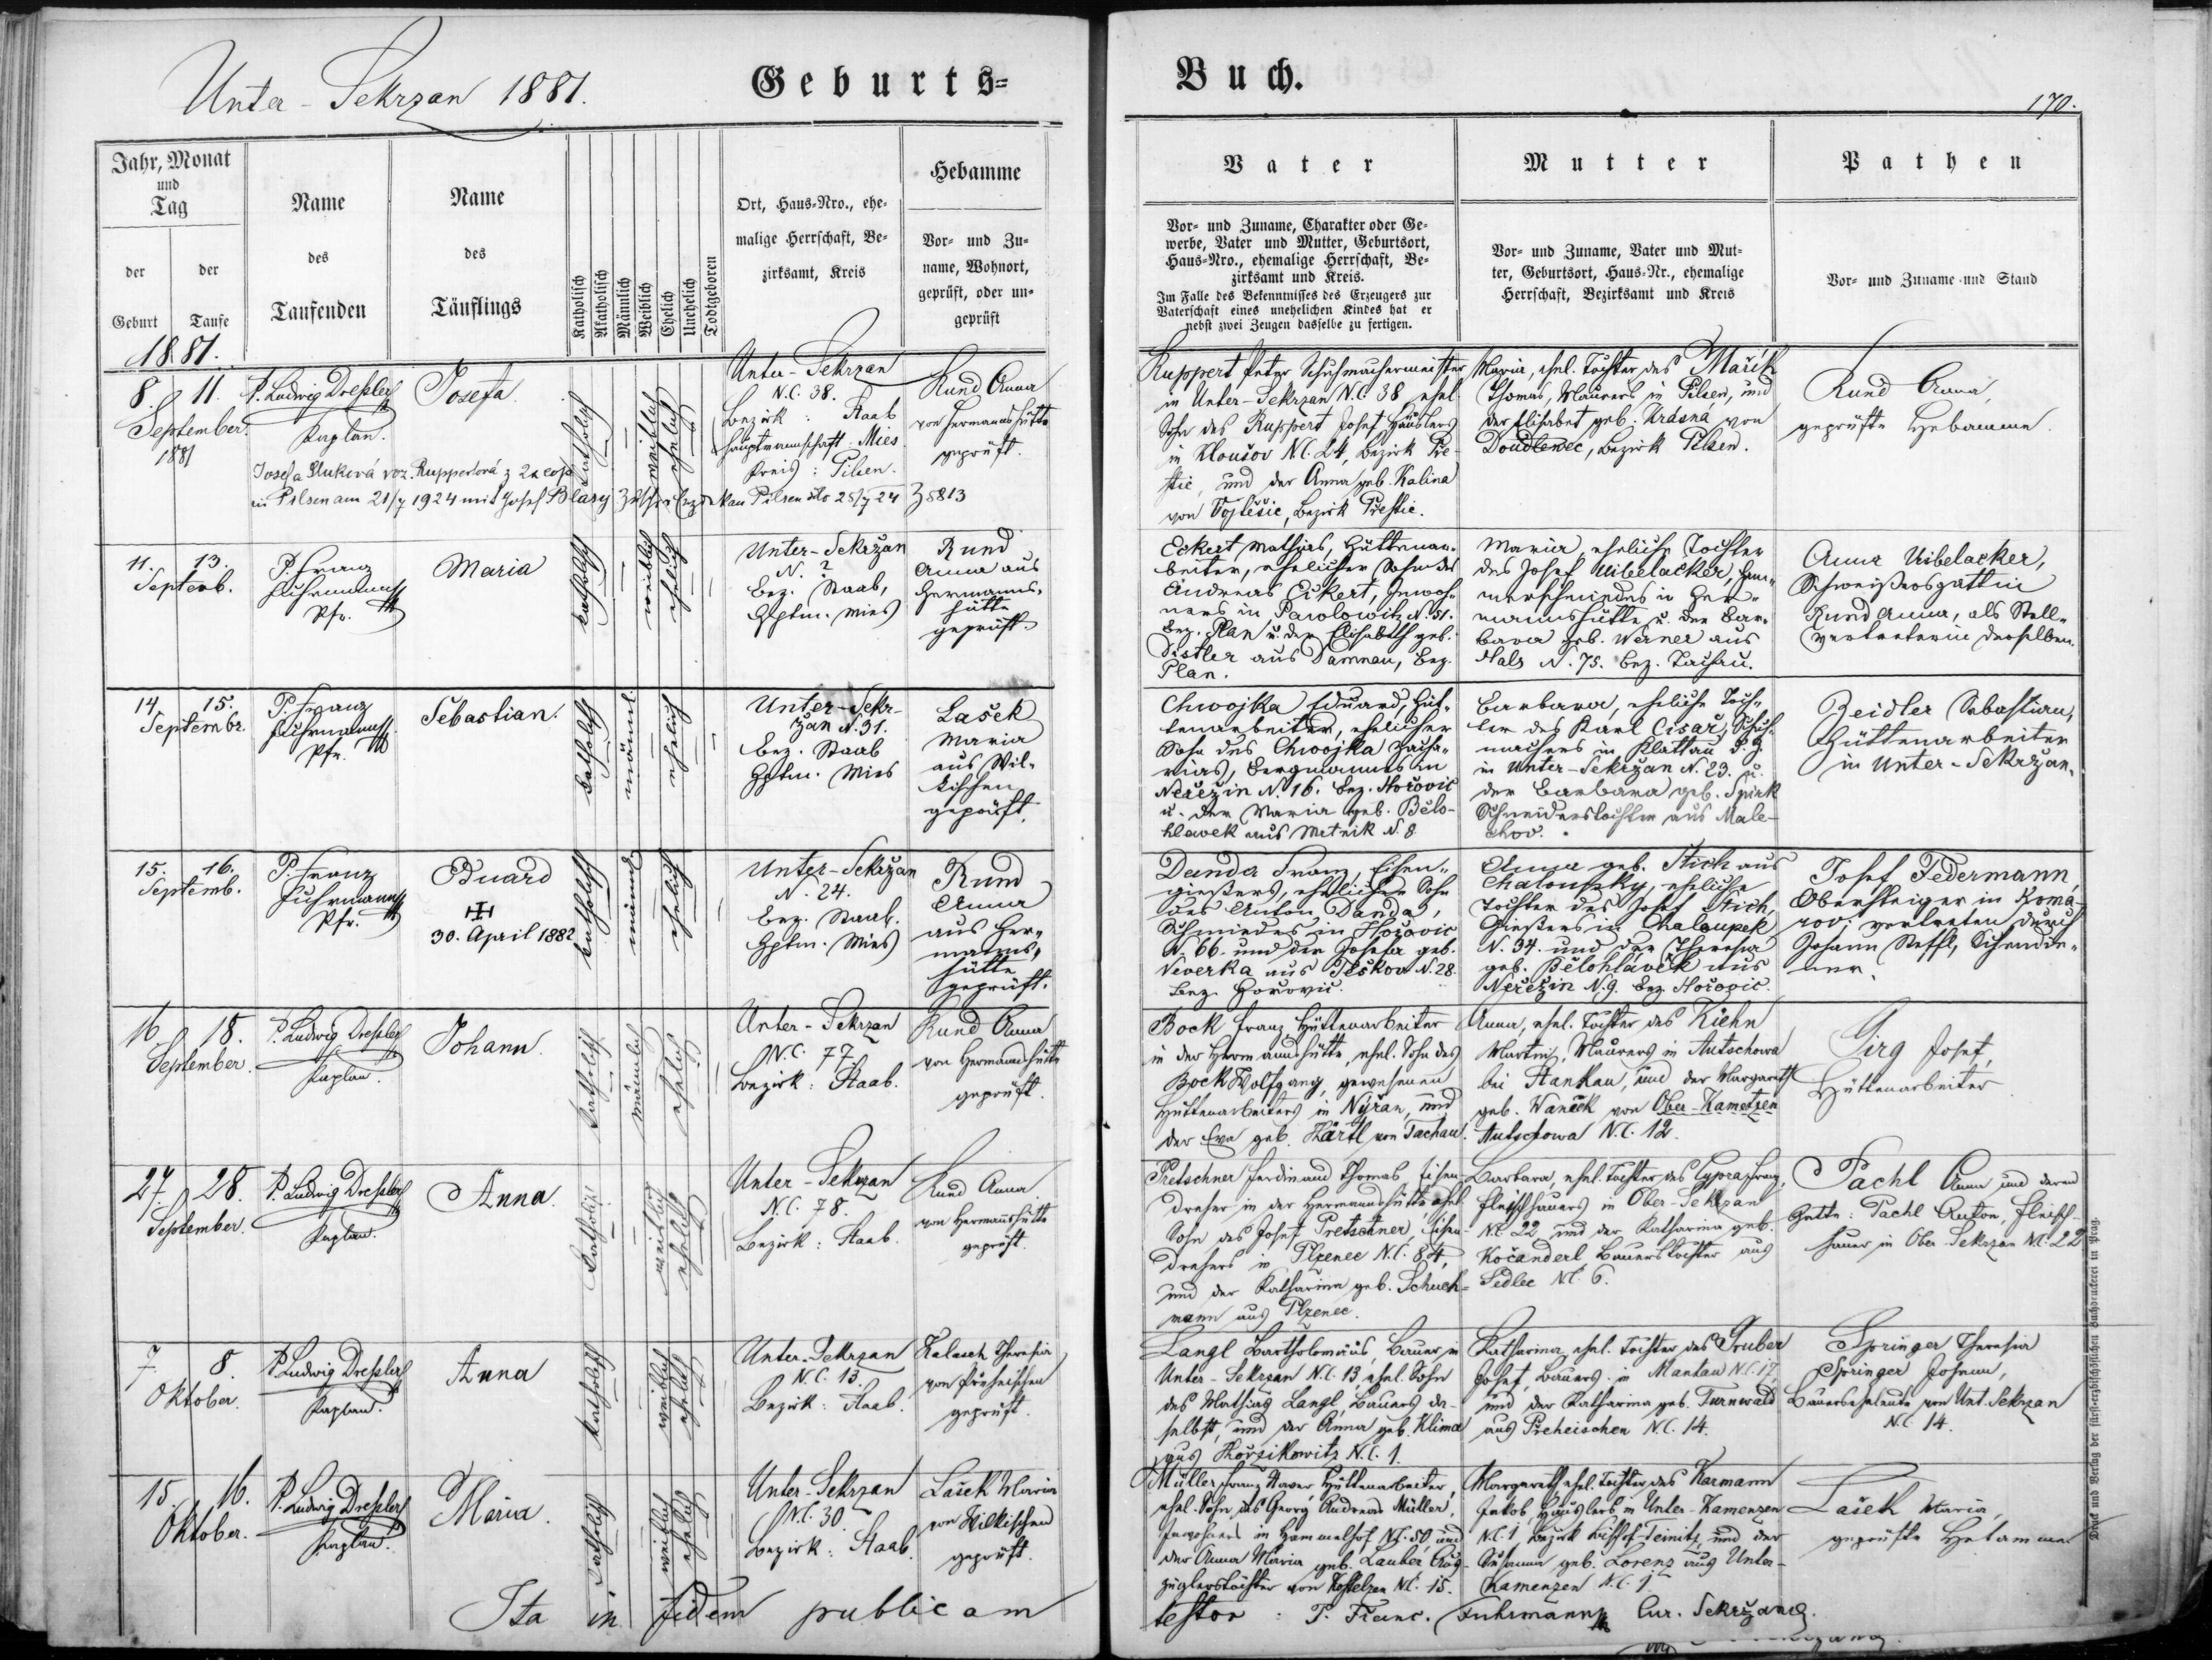 Unter-Sekrzan 1881.
Geburts=
Buch.
170.
Jahr, Monat
und
Tag
der
Geburt
der
Taufe
Name
des
Taufenden
Name
des
Täuflings
Katholisch
Akatholisch
Männlich
Weiblich
Ehelich
Unehelich
Todtgeboren
Ort, Haus-Nro., ehe-
malige Herrschaft, Be-
zirksamt, Kreis
Hebamme
Vor- und Zu-
name, Wohnort,
geprüft, oder un-
geprüft
Vater
Vor- und Zuname, Charakter oder Ge-
werbe, Vater und Mutter, Geburtsort,
Haus-Nro., ehemalige Herrschaft, Be-
zirksamt und Kreis.
Im Falle des Bekenntnisses des Erzeugers zur
Vaterschaft eines unehelichen Kindes hat er
nebst zwei Zeugen dasselbe zu fertigen.
Mutter
Vor- und Zuname, Vater und Mut-
ter, Geburtsort, Haus-Nr., ehemalige
Herrschaft, Bezirksamt und Kreis
Pathen
Vor- und Zuname und Stand
1881.
8. 11.
September
1881
P. Ludwig Dreßler
Kaplan.
Josefa.
katholisch
weiblich
ehelich
Unter-Sekrzan
N.C. 38.
Bezirk: Staab
Hauptmannschaft: Mies
Kreis: Pilsen.
Rund Anna
von Hermannshütte
geprüft.
Ruppert Peter Schuhmachermeister
in Unter-Sekrzan N.C. 38 ehel.
Sohn des Ruppert Josef Häuslers
in Kloušov N.C. 24, Bezirk Pře-
štic, und der Anna geb. Kalina
von Vojtěšic, Bezirk Přeštic.
Maria, ehel. Tochter des Mařík
Thomas, Maurers in Pilsen, und
der Elisabet geb. Krásná von
Doudlewec, Bezirk Pilsen.
Rund Anna,
geprüfte Hebamme.
in Pilsen am 21/7 1924 mit Josef Blasy
Pilsen dto 25/7 24 Z 5813
11. 13.
Septemb.
P. Franz
Fuhrmann
Pfr.
Maria
katholisch
weiblich
ehelich
Unter-Sekržan
N. ?
Bez. Staab,
Hptm. Mies
Rund
Anna aus
Hermanns-
hütte
geprüft.
Eckert Mathias, Hüttenar-
beiter, ehelicher Sohn des
Andreas Eckert, Inwoh-
ners in Pawlowitz N. 51.
Bez. Plan u. der Elisabeth geb.
Distler aus Damnau, Bez.
Plan.
Maria, eheliche Tochter
des Josef Uibelacker, Ham-
merschmiedes in Her-
mannshütte u. der Bar-
bara geb. Werner aus
Hals N. 75. Bez. Tachau.
Anna Uibelacker,
Schweißersgattin
Rund Anna, als Stell-
vertreterin derselben.
14. 15.
Septembr.
P. Franz
Fuhrmann
Pfr.
Sebastian.
katholisch
männl.
ehelich
Unter-Sekr-
žan N. 31.
Bez. Staab
Hptm. Mies
Lašek
Maria
aus Wil-
kischen
geprüft.
Chwojka Eduard, Hüt-
tenarbeiter, ehelicher
Sohn des Chwojka Zacha-
rias, Bergmannes in
Neřežin N. 16. Bez. Hořovic
u. der Maria geb. Bělo-
hlawek aus Mrtnik N. 8
Barbara, eheliche Toch-
ter des Karl Cisař, Schuh-
machers in Klattau d. Z.
in Unter-Sekržan N. 29. u.
der Barbara geb. Spirk
Schneiderstochter aus Male-
chov.
Zeidler Sebastian,
Hüttenarbeiter
in Unter-Sekrzan.
15. 16.
Septemb.
P. Franz
Fuhrmann
Pfr.
Eduard
30. April 1882
katholisch
männl.
ehelich
Unter-Sekržan
N. 24.
Bez. Staab.
Hptm. Mies
Rund
Anna
aus Her-
manns-
hütte
geprüft.
Danda Franz, Eisen-
gießers, ehelicher Sohn
des Anton Danda,
Schmiedes in Hořovic
N. 66. und der Josefa geb.
Neverka aus Teškov N. 28.
Bez. Hořovic.
Anna geb. Stich aus
Chaloupky, eheliche
Tochter des Josef Stich,
Gießers in Chaloupek
N. 34. und der Theresia
geb. Bělohlávek aus
Neřežin N. 9. Bez. Hořovic.
Josef Federmann,
Obersteiger in Komá-
rov; vertreten durch
Johann Steffl,
16. 18.
September
P. Ludwig Dreßler
Kaplan.
Johann.
katholisch
männlich
ehelich
Unter-Sekrzan
N.C. 77.
Bezirk: Staab.
Rund Anna
von Hermannshütte
geprüft.
Bock Franz Hüttenarbeiter
in der Hermannshütte, ehel. Sohn des
Bock Wolfgang, gewesenen
Hüttenarbeiters in Nýřan, und
der Eva geb. Härtl von Tachau.
Anna, ehel. Tochter des Kiehn
Martin, Maurers in Autschowa
bei Stankau, und der Margareth
geb. Waněck von Ober-Kametzen
Autschowa N.C. 12.
Girg Josef,
Hüttenarbeiter
27. 28.
September.
P. Ludwig Dreßler
Kaplan.
Anna.
katholisch
weiblich
ehelich
Unter-Sekrzan
N.C. 78.
Bezirk: Staab.
Rund Anna
von Hermannshütte
geprüft.
Pretschner Ferdinand Thomas Eisen-
dreher in der Hermannshütte, ehel.
Sohn des Josef Pretschner, Eisen-
drehers in Plzenec N.C. 84,
und der Katharina geb. Schuch-
mann aus Plzenec.
Barbara, ehel. Tochter des Cypra Franz,
Fleischhauers in Ober-Sekrzan
N.C. 22 und der Katharina geb.
Kočanderl Bauerstochter aus
Sedlec N.C. 6.
Pachl Anna und deren
Gatte: Pachl Anton, Fleisch-
hauer in Ober-Sekrzan N.C. 22
7. 8.
Oktober.
P. Ludwig Dreßler
Kaplan.
Anna
katholisch
weiblich
ehelich
Unter-Sekrzan
N.C. 13.
Bezirk: Staab.
Kalasch Theresia
von Přeheischen
geprüft.
Langl Bartholomäus, Bauer in
Unter-Sekrzan N.C. 13, ehel. Sohn
des Mathias Langl, Bauers da-
selbst, und der Anna geb. Klima
aus Horsikowitz N.C. 1.
Katharina, ehel. Tochter des Gruber
Josef, Bauers in Mantau N.C. 17,
und der Katharina geb. Turnwald
aus Přeheischen N.C. 14.
Springer Theresia
Springer Johann,
Bauerseheleute von Unt. Sekrzan
N.C. 14.
15. 16.
Oktober.
P. Ludwig Dreßler
Kaplan.
Maria.
katholisch
weiblich
ehelich
Unter-Sekrzan
N.C. 30.
Bezirk: Staab.
Lašek Maria
von Wilkischen
geprüft.
Müller Franz Xaver, Hüttenarbeiter,
ehel. Sohn des Georg Andreas Müller,
Inwohners in Hammelhof N.C. 50, und
der Anna Maria geb. Lauber, Aus-
züglerstochter von Kostelzen N.C. 15.
Margareth, ehel. Tochter des Karmann
Jakob, Häuslers in Unter-Kamenzen
N.C. 1 Bezirk Bischof-Teinitz, und der
Susanna geb. Lorenz aus Unter-
Kamenzen N.C. 1.
Lašek Maria,
geprüfte Hebamme
Ita in fidem publicam
testor: P. Franc. Fuhrmann Cur. Sekržane.
Druck und Verlag der fürst-erzbischöflichen Buchdruckerei in Prag.